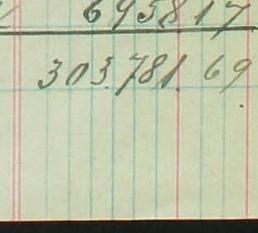 695817
303.781.69